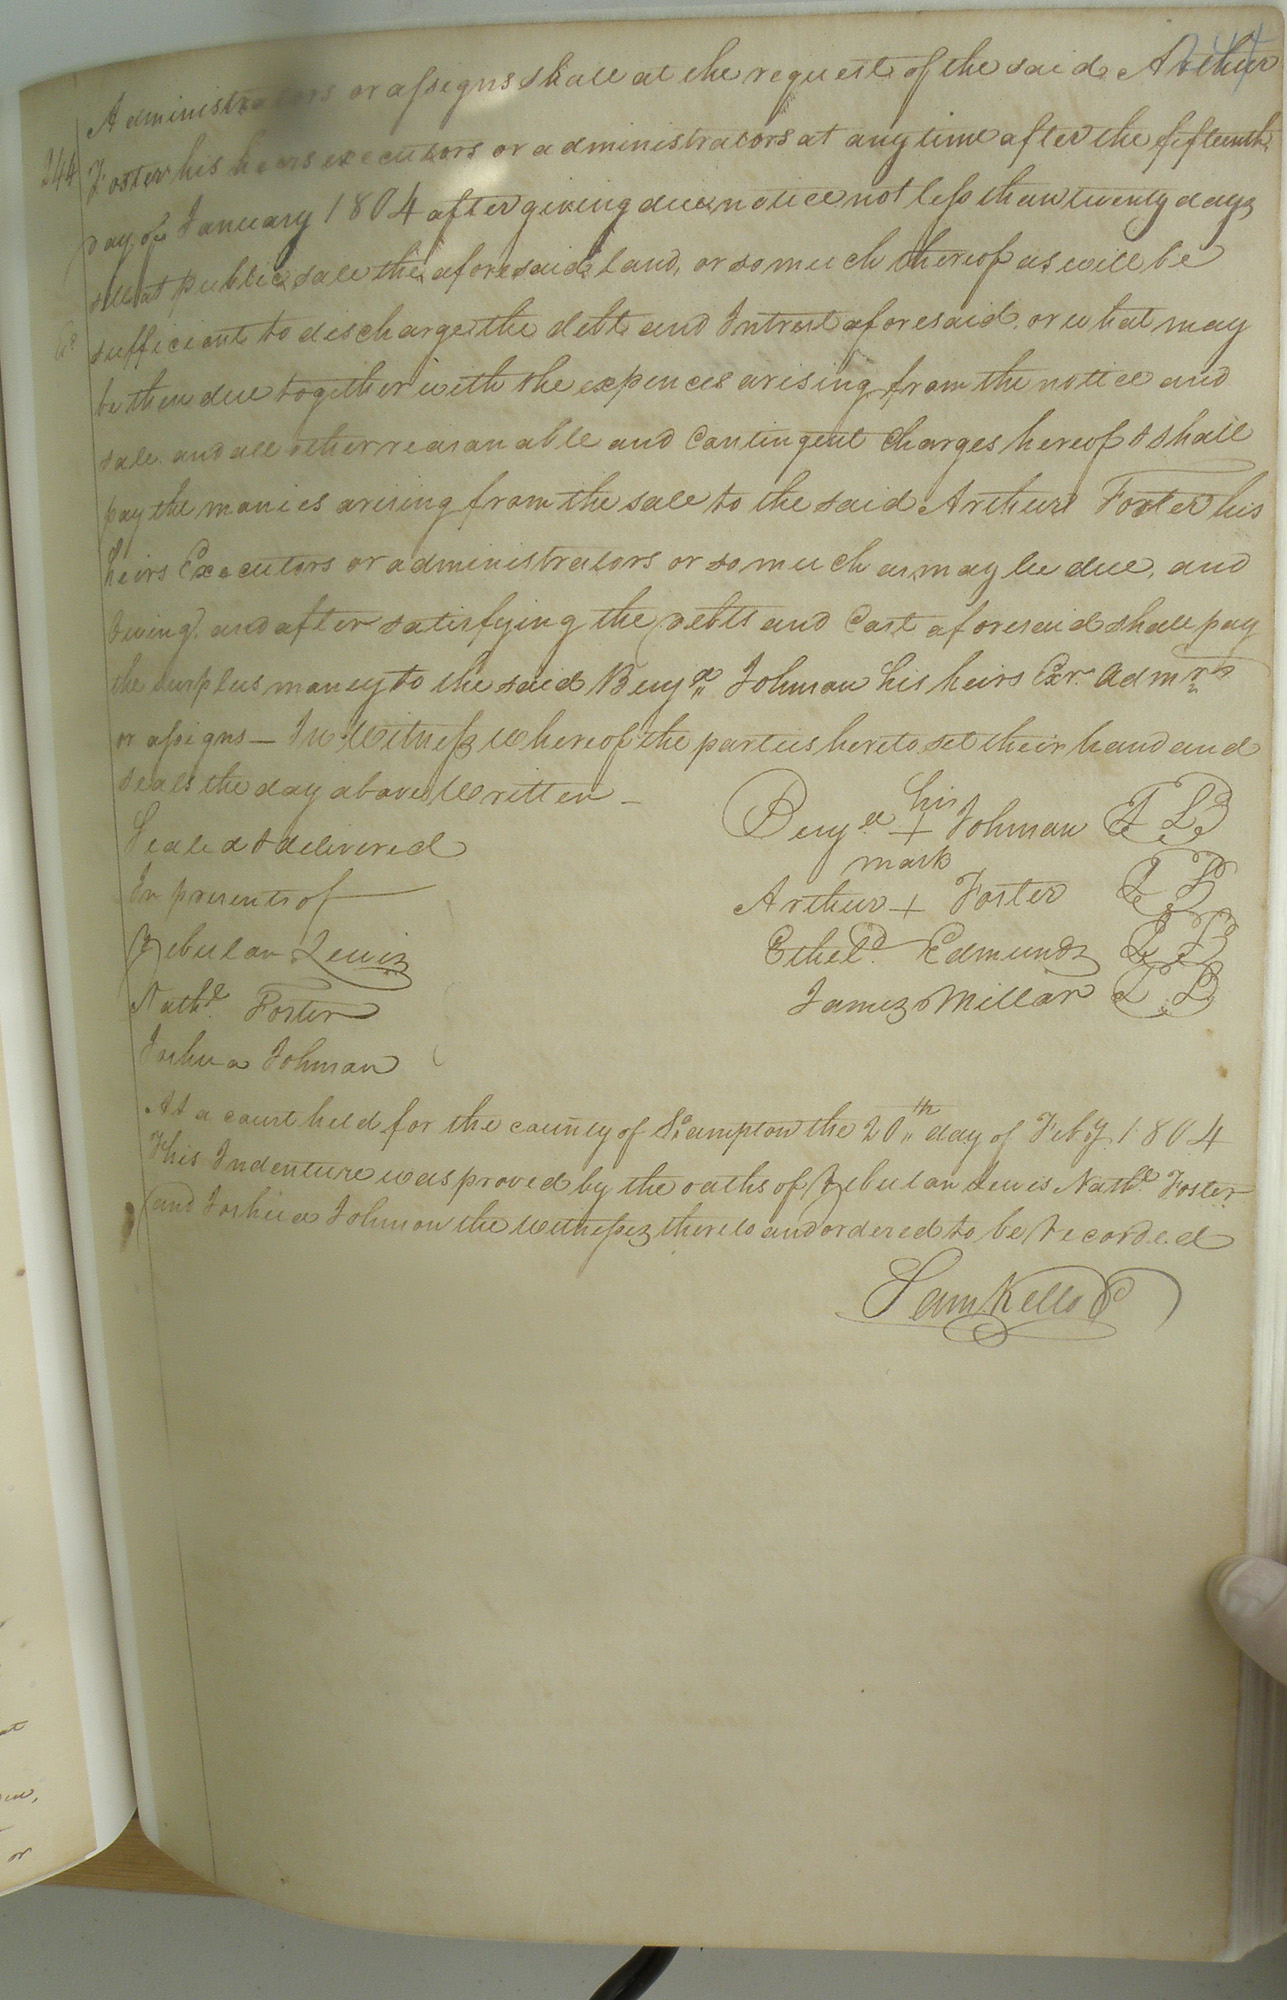 244
Administrators or assigns shall at the request of the said Arthur
244
Foster his hears executors or administrators at any time after the fifteenth
day of January 1804 after giving due notice not less than twenty days
sell at public sale the aforesaid land, or so much thereof as will be
sufficient to discharge the debt and Intrest aforesaid, or what may
be then due together with the expences arising from the notice and
sale and all other reasonable and Contingent Charges hereof & shall
pay the monies arising from the sale to the said Arthur Foster his
heirs Executors or administrators or so much as may be due, and
owing, and after satisfying the debts and Cost aforesaid shall pay
the surplus money to the said Benja Johnson his heirs Exr. Admrs
or assigns — In Witness whereof the parties hereto set their hand and
seals the day above Written —
Sealed & delivered
In presents of
Zebulon Lewis
Nathl. Foster
Joshua Johnson
his
Benja + Johnson LS
mark
Arthur + Foster LS
Etheld. Edmunds LS
James Millar LS
At a court held for the county of Shampton the 20th day of Feby. 1804
This Indenture was proved by the oaths of Zebulon Lewis Nathl. Foster
and Joshua Johnson the witnesses thereto and ordered to be recorded
Sam Kello C